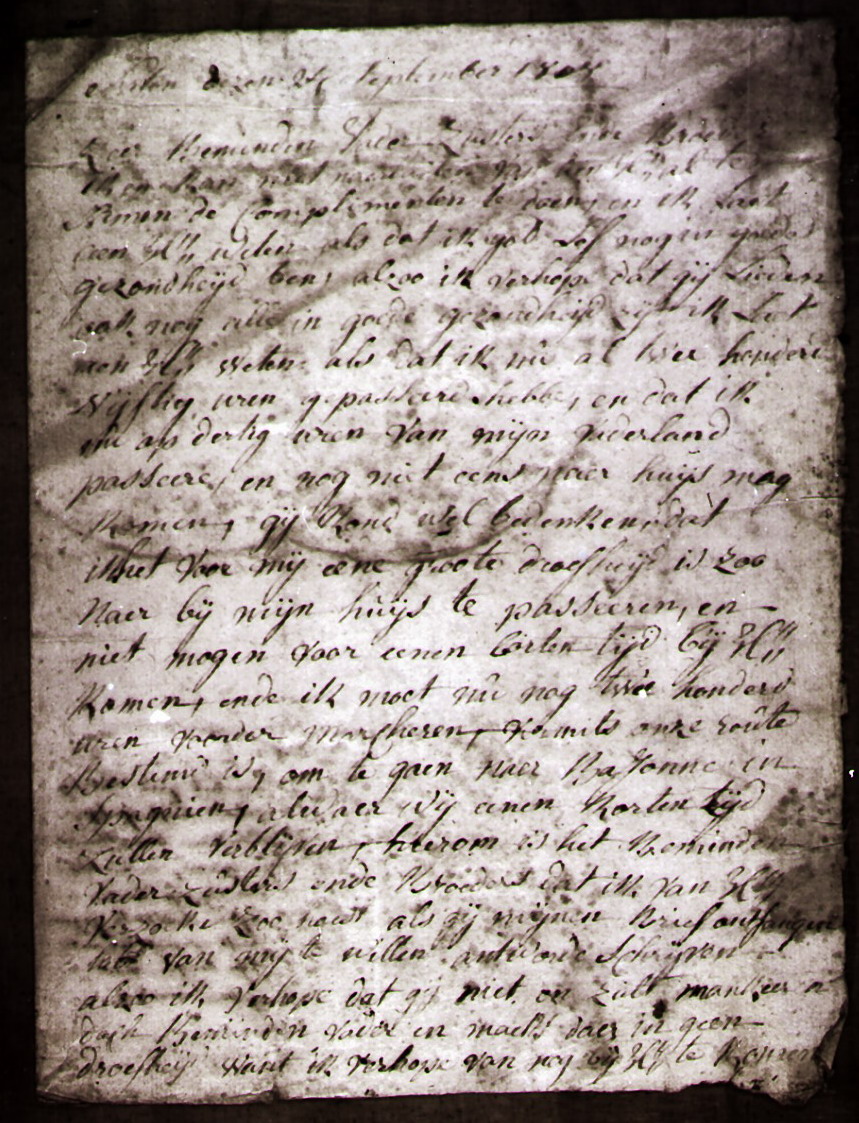 dezen 24 September 180
Zeer Beminden Vader Zusters en Broeders
ik en kan niet naerlaten van
de Complimenten te doen, en ik Laet
weten als dat ik god Lof nog in goede
gezondheijd ben, alzoo ik verhope dat gij Lieden
ook nog alle in goede gezondheijd zijt ik Laet
weten als dat ik nu al twee honderd
vijftig uren gepasseerd hebbe, en dat ik
nu op dertig uren van mijn vaderland
passeere, en nog niet eens naer huijs mag
Komen, gij Kond wel bedenken dat
het voor mij eene groote droefheijd is zoo
Naer bij mijn huijs te passeeren, en
niet mogen voor eenen korten tijd bij
Komen, ende ik moet nu nog twee honderd
uren voorder marcheren, vermits onze route
Bestemd is, om te gaen naer Bajonne in
Spagnien, alwaer wij eenen Korten tijd
Zullen verblijven, hierom is het Beminden
Vader Zusters ende Broeders dat ik van
Verzoeke Zoo haest als gij mijnen Brief ontfangen
van mij te willen antwoorde Schrijven
alzoo ik verhope dat gij niet en Zult mankeeren
doch Beminden Vader en maekt daer in geen
droefheijd want ik verhope van nog bij te Komen